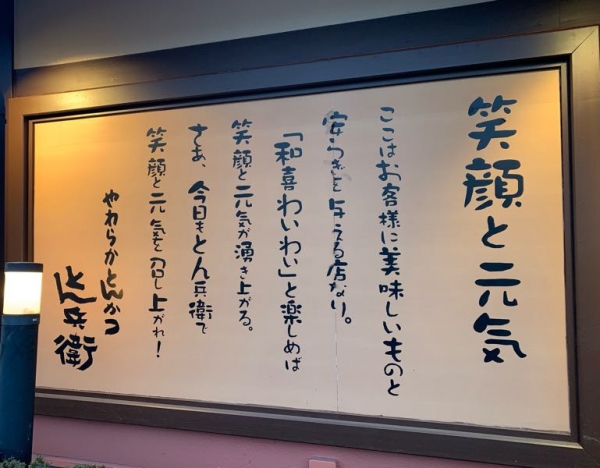 笑顔と元気
ここはお客様に美味しいものと
安らぎを与える店なり。
「和喜わいわい」と楽しめば
笑顔と元気が湧き上がる。
さあ、今日もとん兵衛で
笑顔と元気を召し上がれ！
やわらかとんかつ
とん兵衛